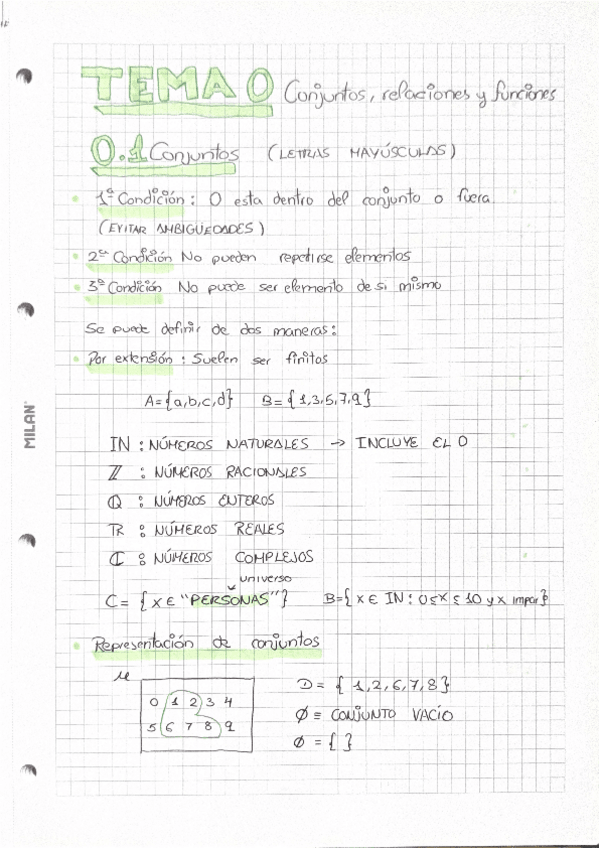 TEMA 0 Conjuntos, relaciones y funciones
0.1 Conjuntos (LETRAS MAYÚSCULAS)
1ª Condición: O esta dentro del conjunto o fuera
(EVITAR AMBIGÜEDADES)
2ª Condición No pueden repetirse elementos
3ª Condición No puede ser elemento de si mismo
Se puede definir de dos maneras:
Por extensión: Suelen ser finitos
A={a,b,c,d} B={1,3,5,7,9}
MILAN
ℕ: NÚMEROS NATURALES → INCLUYE EL 0
ℤ: NÚMEROS RACIONALES
ℚ: NÚMEROS ENTEROS
ℝ: NÚMEROS REALES
ℂ: NÚMEROS COMPLEJOS
universo
C= {x∈"PERSONAS"} B={x∈ℕ: 0≤x≤10 y x impar}
Representación de conjuntos
U
0 1 2 3 4
5 6 7 8 9
D= {1,2,6,7,8}
Ø ≡ CONJUNTO VACÍO
Ø = { }